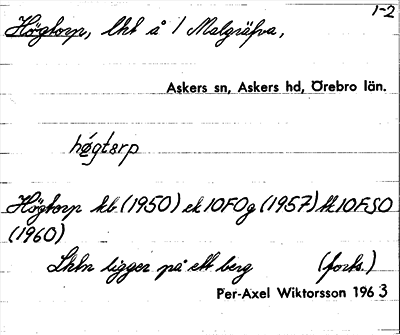 1-2
Högtorp, lht å 1 Malgräfva,
Askers sn, Askers hd, Örebro län.
hǿgtɵrp
Högtorp kb (1950) ek 10FOg (1957) tk 10FSO
(1960)
Lhtn ligger på ett berg (forts.)
Per-Axel Wiktorsson 1963